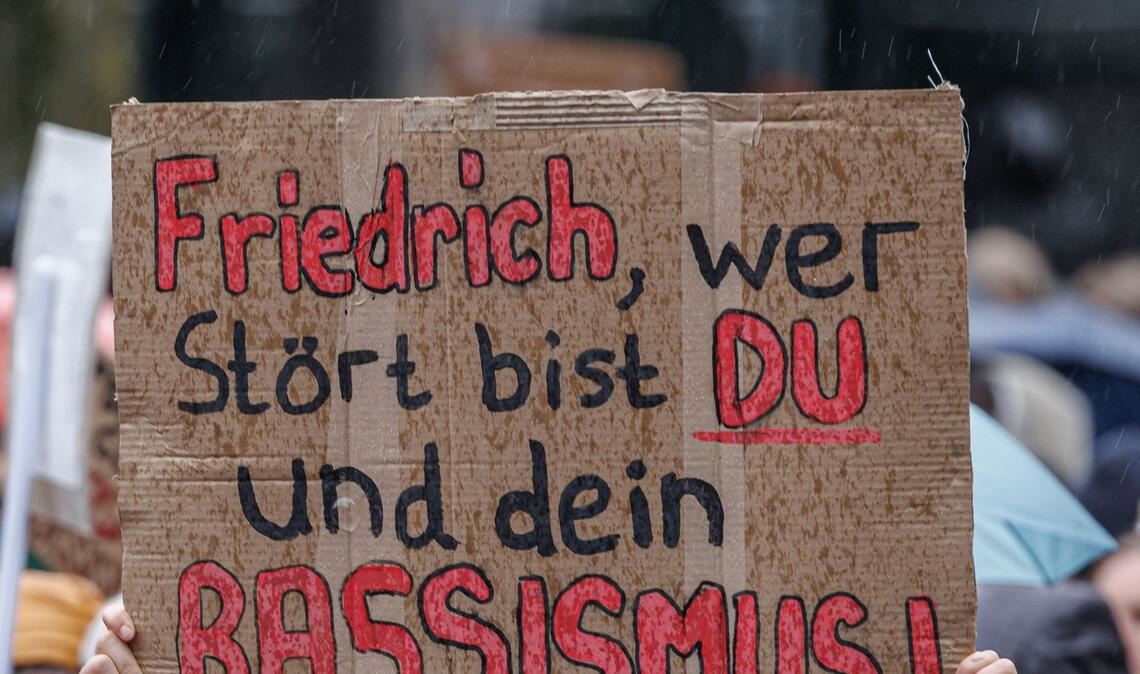 Friedrich, wer
Stört bist DU
und dein
RASSISMUS!